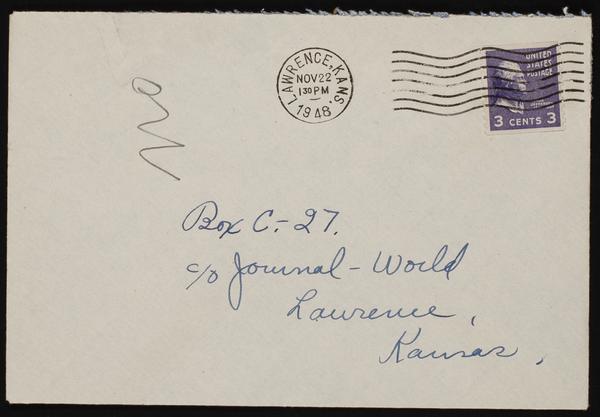 LAWRENCE, KANS.
NOV 22
1 30 PM
1948
UNITED
STATES
POSTAGE
3 CENTS 3
No
Box C.-27.
c/o Journal-World
Lawrence,
Kansas,